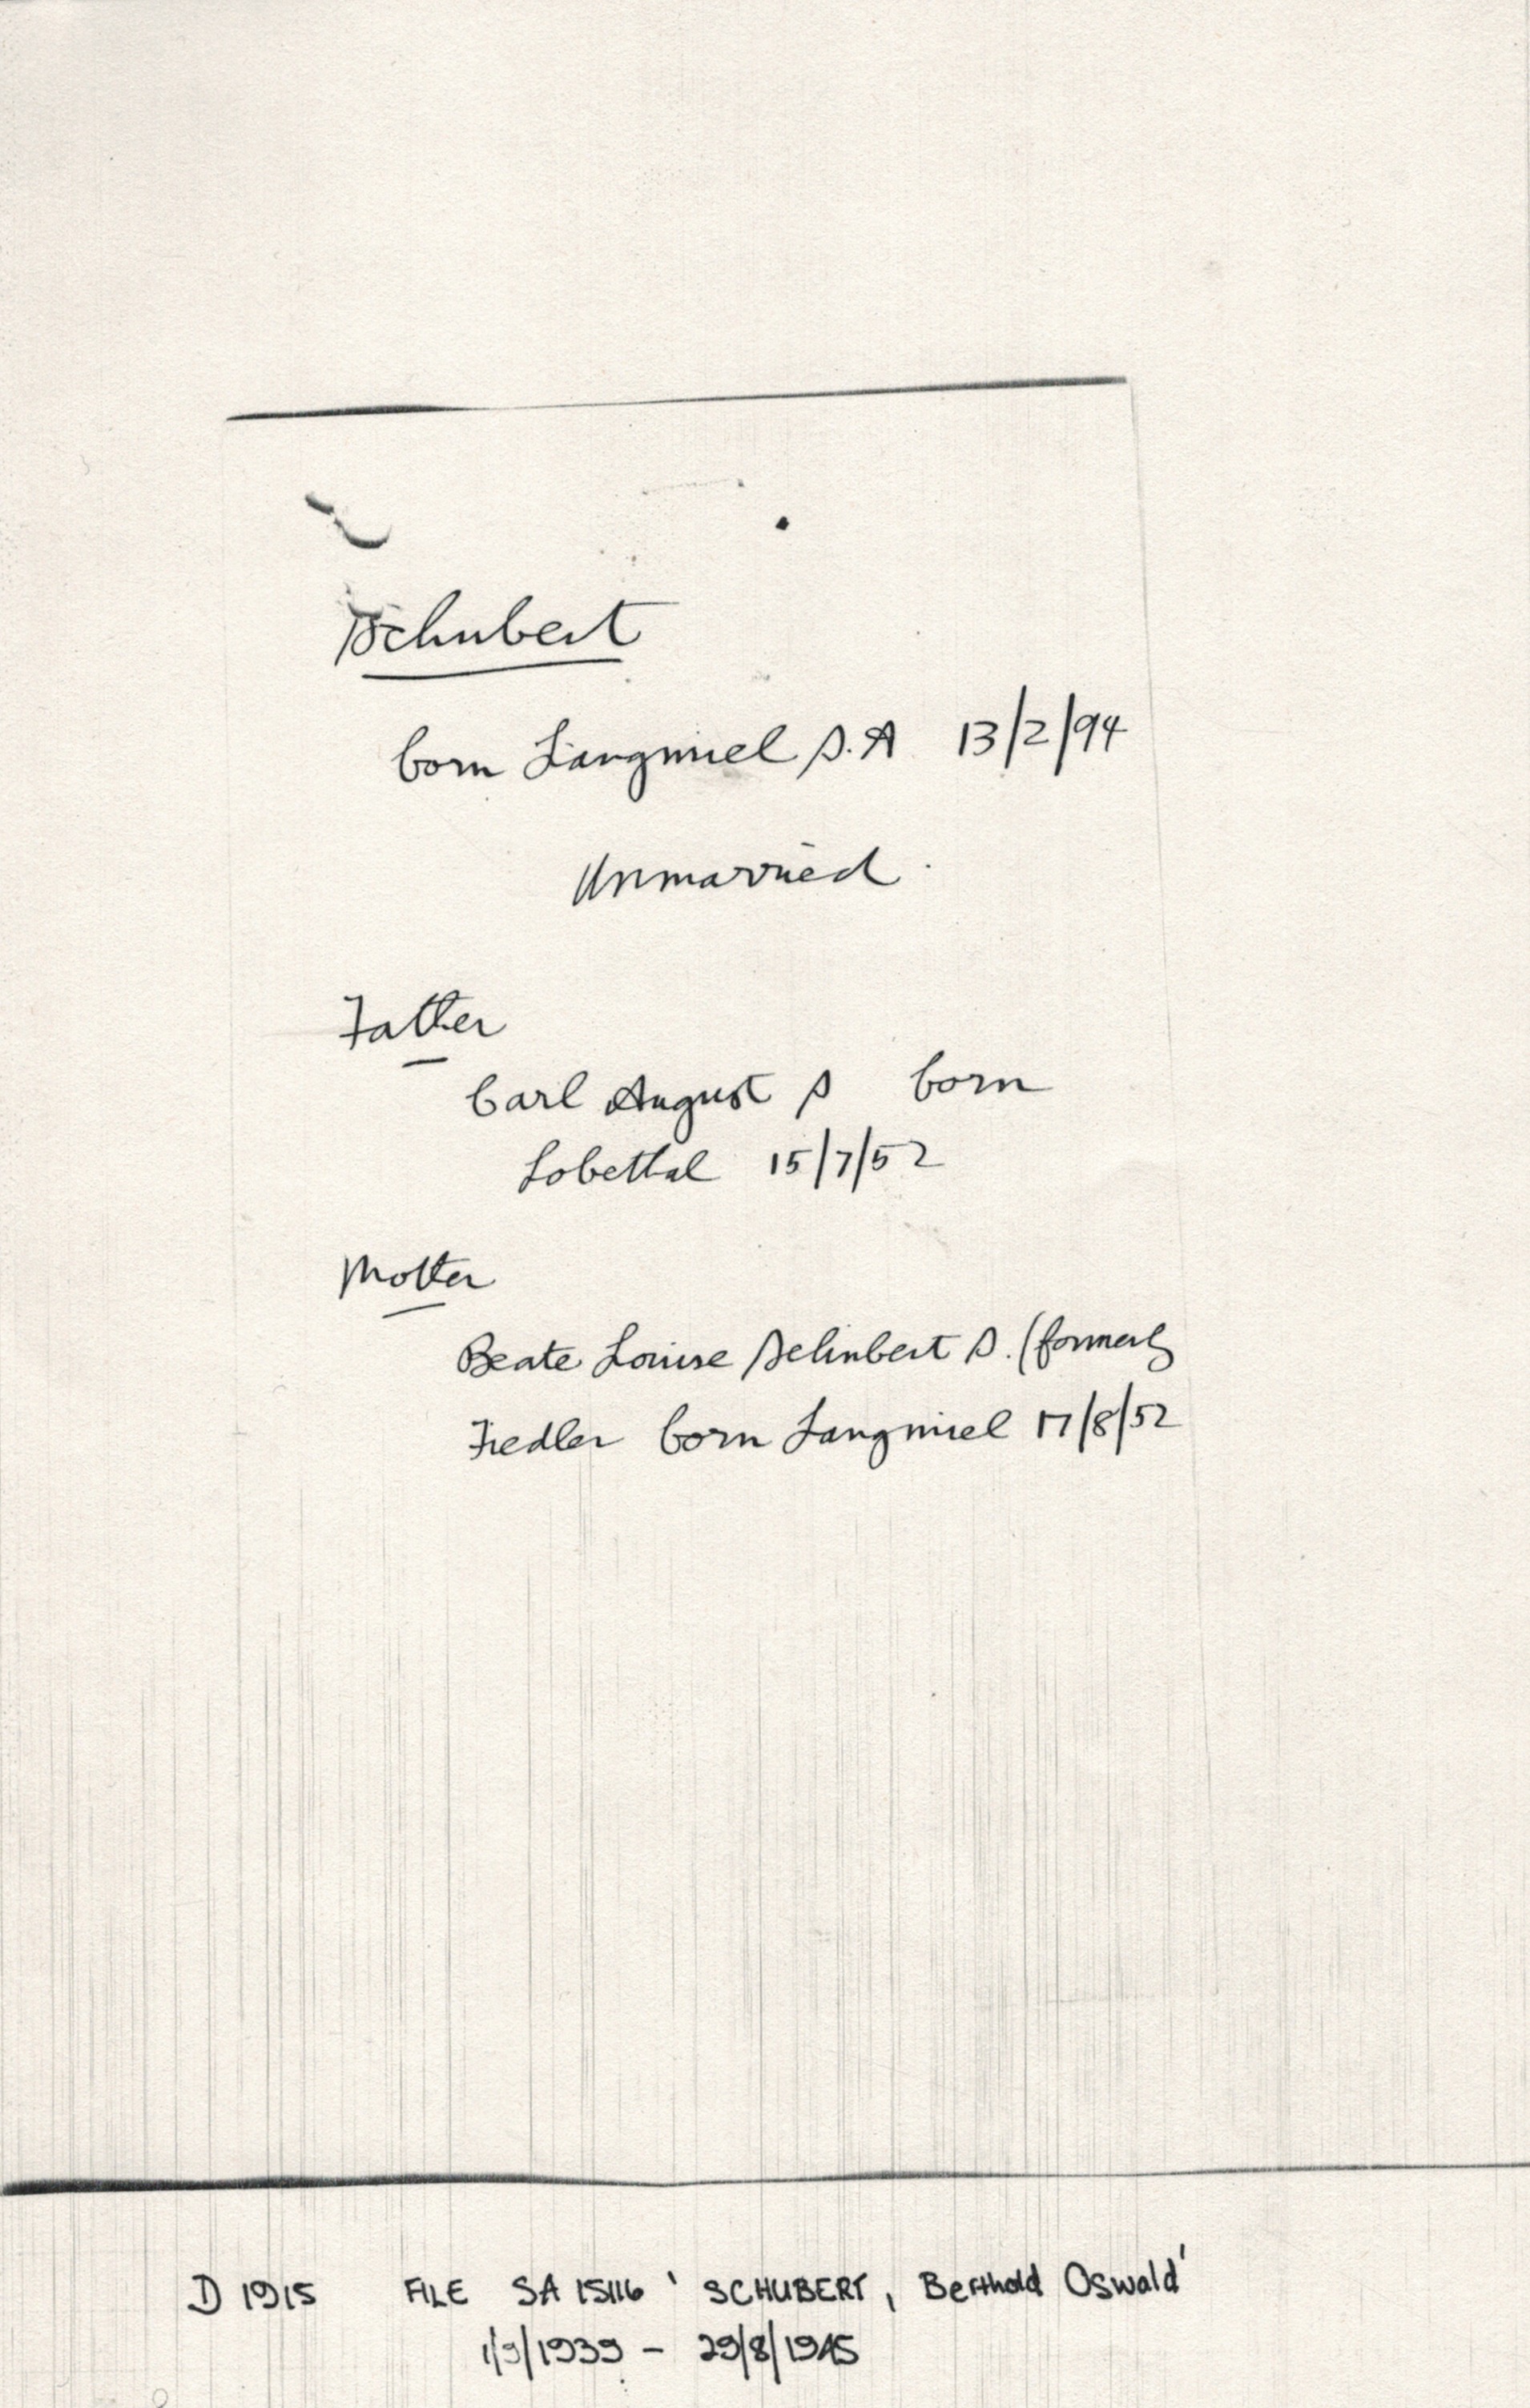 Schubert
born Langmiel S.A 13/2/94
Unmarried
Father
Carl August S born
Lobethal 15/7/52
Mother
Beate Louise Schubert S. (formerly
Fiedler born Langmiel 17/8/52
D 1915 FILE SA 15116 'SCHUBERT, Berthold Oswald'
1/9/1939 - 29/8/1945